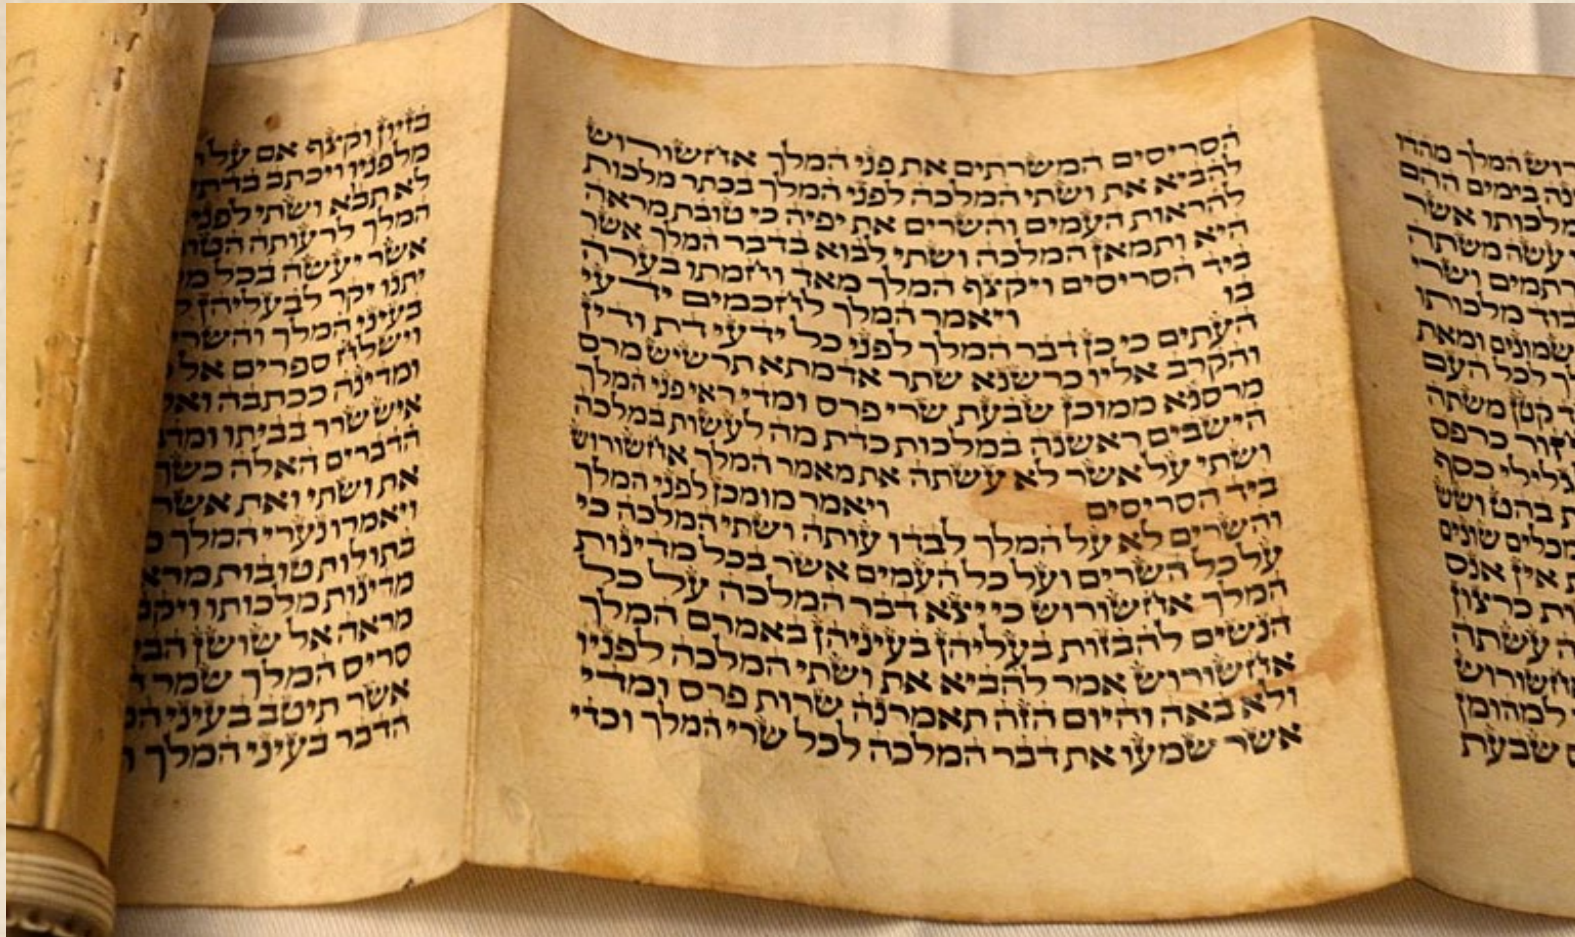 רוש המלך מהדו
נה בימים ההם
מלכותו אשר
עשה משתה
רתמים ושרי
בוד מלכותו
שמונים ומאת
לך לכל העם
ד קטן משתה
חור כרפס
גלילי כסף
ת בהט ושש
מכלים שונים
ת אין אנס
ות כרצון
ה עשתה
אחשורוש
למהומן
ם שבעת
הסריסים המשרתים את פני המלך אחשורוש
להביא את ושתי המלכה לפני המלך בכתר מלכות
להראות העמים והשרים את יפיה כי טובת מראה
היא ותמאן המלכה ושתי לבוא בדבר המלך אשר
ביד הסריסים ויקצף המלך מאד וחמתו בערה
בו ויאמר המלך לחכמים ידעי
העתים כי כן דבר המלך לפני כל ידעי דת ודין
והקרב אליו כרשנא שתר אדמתא תרשיש מרס
מרסנא ממוכן שבעת שרי פרס ומדי ראי פני המלך
הישבים ראשנה במלכות כדת מה לעשות במלכה
ושתי על אשר לא עשתה את מאמר המלך אחשורוש
ביד הסריסים ויאמר מומכן לפני המלך
והשרים לא על המלך לבדו עותה ושתי המלכה כי
על כל השרים ועל כל העמים אשר בכל מדינות
המלך אחשורוש כי יצא דבר המלכה על כל
הנשים להבזות בעליהן בעיניהן באמרם המלך
אחשורוש אמר להביא את ושתי המלכה לפניו
ולא באה והיום הזה תאמרנה שרות פרס ומדי
אשר שמעו את דבר המלכה לכל שרי המלך וכדי
בזיון וקצף אם על
מלפניו ויכתב בדתי
לא תבא ושתי לפני
המלך לרעותה הטו
אשר יעשה בכל מ
יתנו יקר לבעליהן ל
בעיני המלך והשרי
וישלח ספרים אל
ומדינה ככתבה ואל
איש שרר בביתו ומד
הדברים האלה כשך
את ושתי ואת אשר
ויאמרו נערי המלך מ
בתולות טובות מרא
מדינות מלכותו ויקב
מראה אל שושן הבי
סריס המלך שמר ה
אשר תיטב בעיני המ
הדבר בעיני המלך ו